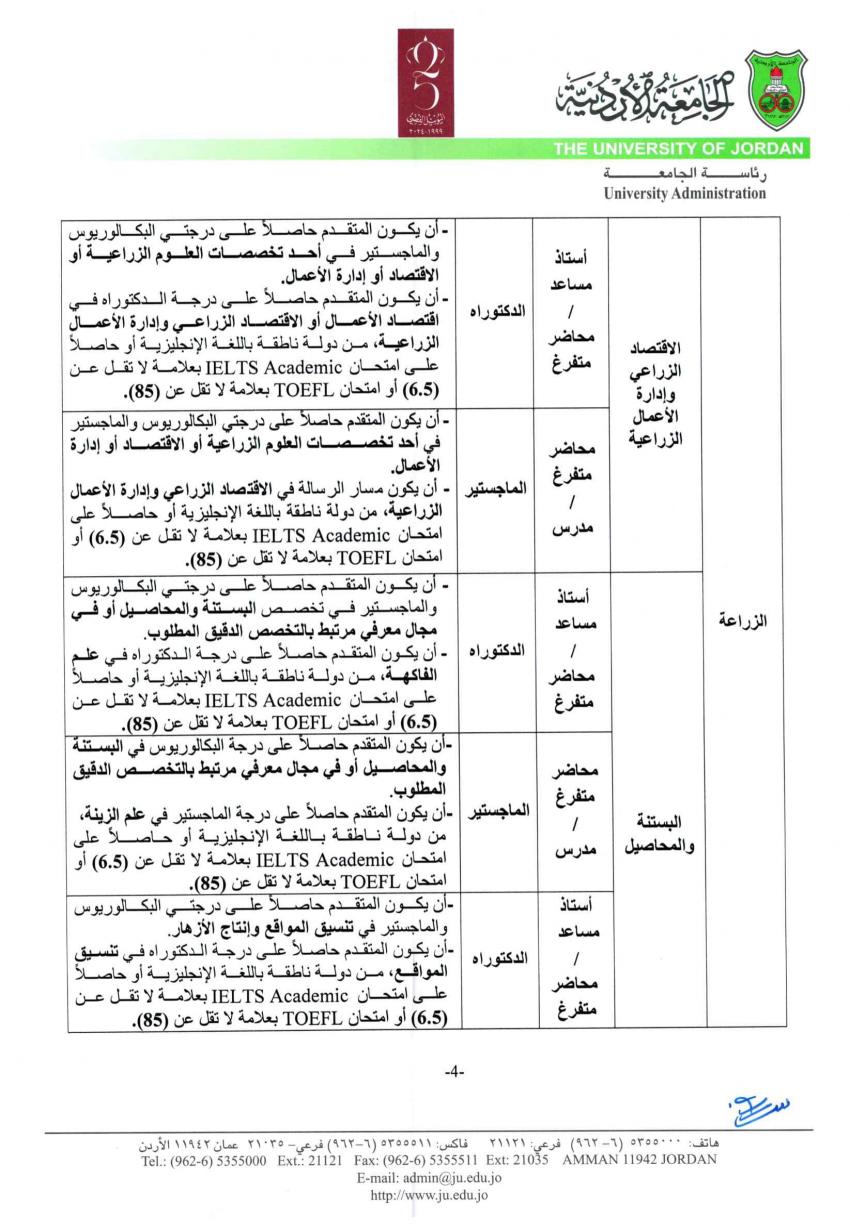 اليوبيل الفضي
١٩٩٩-٢٠٢٤
الجامعة الأردنية
THE UNIVERSITY OF JORDAN
رئاسة الجامعة
University Administration
الزراعة
الاقتصاد
الزراعي
وإدارة
الأعمال
الزراعية
أستاذ
مساعد
/
محاضر
متفرغ
الدكتوراه
- أن يكون المتقدم حاصلاً على درجتي البكالوريوس
والماجستير في أحد تخصصات العلوم الزراعية أو
الاقتصاد أو إدارة الأعمال.
- أن يكون المتقدم حاصلاً على درجة الدكتوراه في
اقتصاد الأعمال أو الاقتصاد الزراعي وإدارة الأعمال
الزراعية، من دولة ناطقة باللغة الإنجليزية أو حاصلاً
على امتحان IELTS Academic بعلامة لا تقل عن
(6.5) أو امتحان TOEFL بعلامة لا تقل عن (85).
محاضر
متفرغ
/
مدرس
الماجستير
- أن يكون المتقدم حاصلاً على درجتي البكالوريوس والماجستير
في أحد تخصصات العلوم الزراعية أو الاقتصاد أو إدارة
الأعمال.
- أن يكون مسار الرسالة في الاقتصاد الزراعي وإدارة الأعمال
الزراعية، من دولة ناطقة باللغة الإنجليزية أو حاصلاً على
امتحان IELTS Academic بعلامة لا تقل عن (6.5) أو
امتحان TOEFL بعلامة لا تقل عن (85).
البستنة
والمحاصيل
أستاذ
مساعد
/
محاضر
متفرغ
الدكتوراه
- أن يكون المتقدم حاصلاً على درجتي البكالوريوس
والماجستير في تخصص البستنة والمحاصيل أو في
مجال معرفي مرتبط بالتخصص الدقيق المطلوب.
- أن يكون المتقدم حاصلاً على درجة الدكتوراه في علم
الفاكهة، من دولة ناطقة باللغة الإنجليزية أو حاصلاً
على امتحان IELTS Academic بعلامة لا تقل عن
(6.5) أو امتحان TOEFL بعلامة لا تقل عن (85).
محاضر
متفرغ
/
مدرس
الماجستير
-أن يكون المتقدم حاصلاً على درجة البكالوريوس في البستنة
والمحاصيل أو في مجال معرفي مرتبط بالتخصص الدقيق
المطلوب.
-أن يكون المتقدم حاصلاً على درجة الماجستير في علم الزينة،
من دولة ناطقة باللغة الإنجليزية أو حاصلاً على
امتحان IELTS Academic بعلامة لا تقل عن (6.5) أو
امتحان TOEFL بعلامة لا تقل عن (85).
أستاذ
مساعد
/
محاضر
متفرغ
الدكتوراه
-أن يكون المتقدم حاصلاً على درجتي البكالوريوس
والماجستير في تنسيق المواقع وإنتاج الأزهار.
-أن يكون المتقدم حاصلاً على درجة الدكتوراه في تنسيق
المواقع، من دولة ناطقة باللغة الإنجليزية أو حاصلاً
على امتحان IELTS Academic بعلامة لا تقل عن
(6.5) أو امتحان TOEFL بعلامة لا تقل عن (85).
-4-
هاتف: ٥٣٥٥٠٠٠ (٦-٩٦٢) فرعي: ٢١١٢١ فاكس: ٥٣٥٥٥١١ (٦-٩٦٢) فرعي- ٢١٠٣٥ عمان ١١٩٤٢ الأردن
Tel.: (962-6) 5355000 Ext.: 21121 Fax: (962-6) 5355511 Ext: 21035 AMMAN 11942 JORDAN
E-mail: admin@ju.edu.jo
http://www.ju.edu.jo